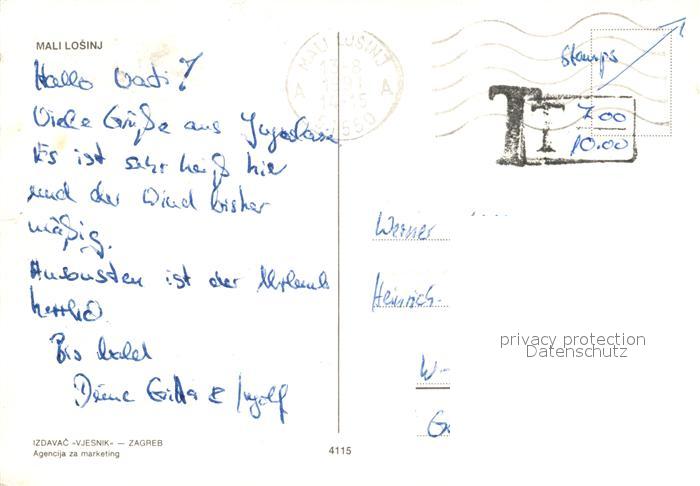 MALI LOŠINJ
Hallo Vati!
Viele Grüße aus Jugoslawien
Es ist sehr heiß hier
und der Wind bisher
mäßig.
Ansonsten ist der Urlaub
herrlich.
Bis bald
Deine Gitta & Ingolf
IZDAVAČ »VJESNIK« — ZAGREB
Agencija za marketing
4115
MALI LOŠINJ
A A
Stamps
T
T 7.00
10.00
Werner
Heinrich-
W-
G
privacy protection
Datenschutz